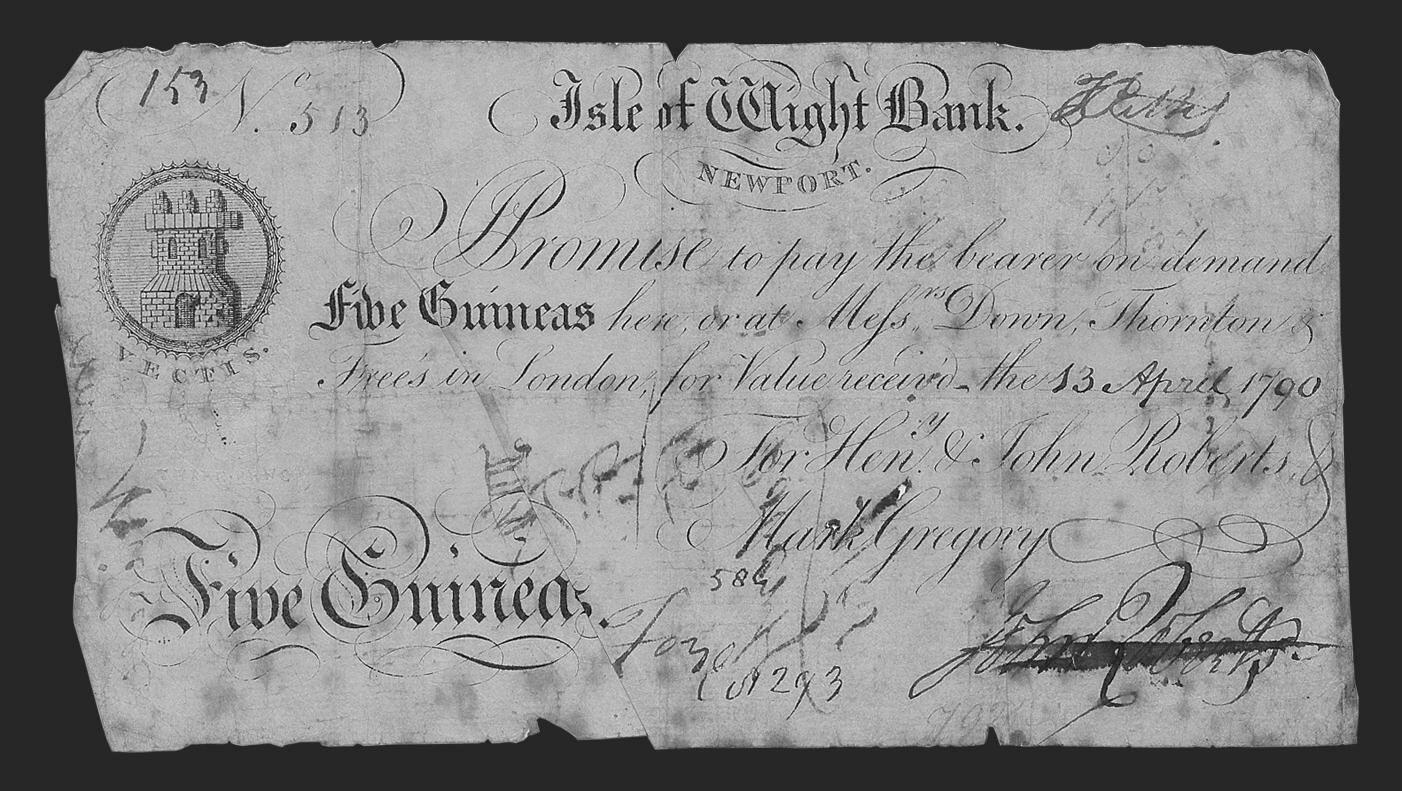 153 No. 513
Isle of Wight Bank.
NEWPORT.
VECTIS.
I Promise to pay the bearer on demand
Five Guineas here, or at Messrs. Down, Thornton &
Free's in London, for Value receiv'd the 13 April 1790
For Heny. & John Roberts, &
Mark Gregory
Five Guineas.
584
John Roberts